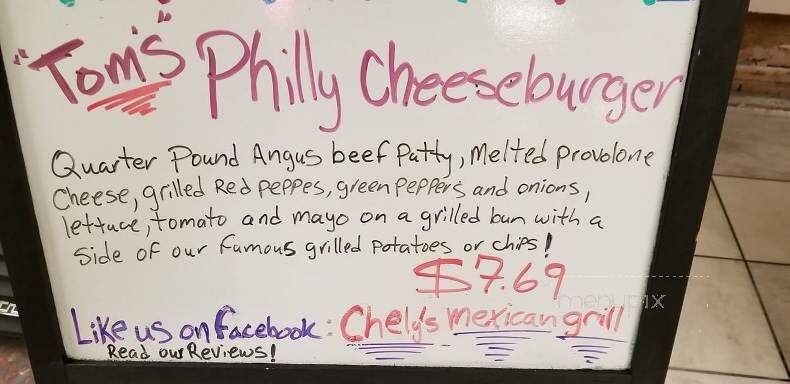 "Tom's" Philly Cheeseburger
Quarter Pound Angus beef Patty, Melted Provolone
Cheese, grilled Red Peppes, green Peppers and onions,
lettuce, tomato and mayo on a grilled bun with a
Side of our Famous grilled Potatoes or chips!
$7.69
menupix
Like us on facebook: Chely's Mexican grill
Read our Reviews!